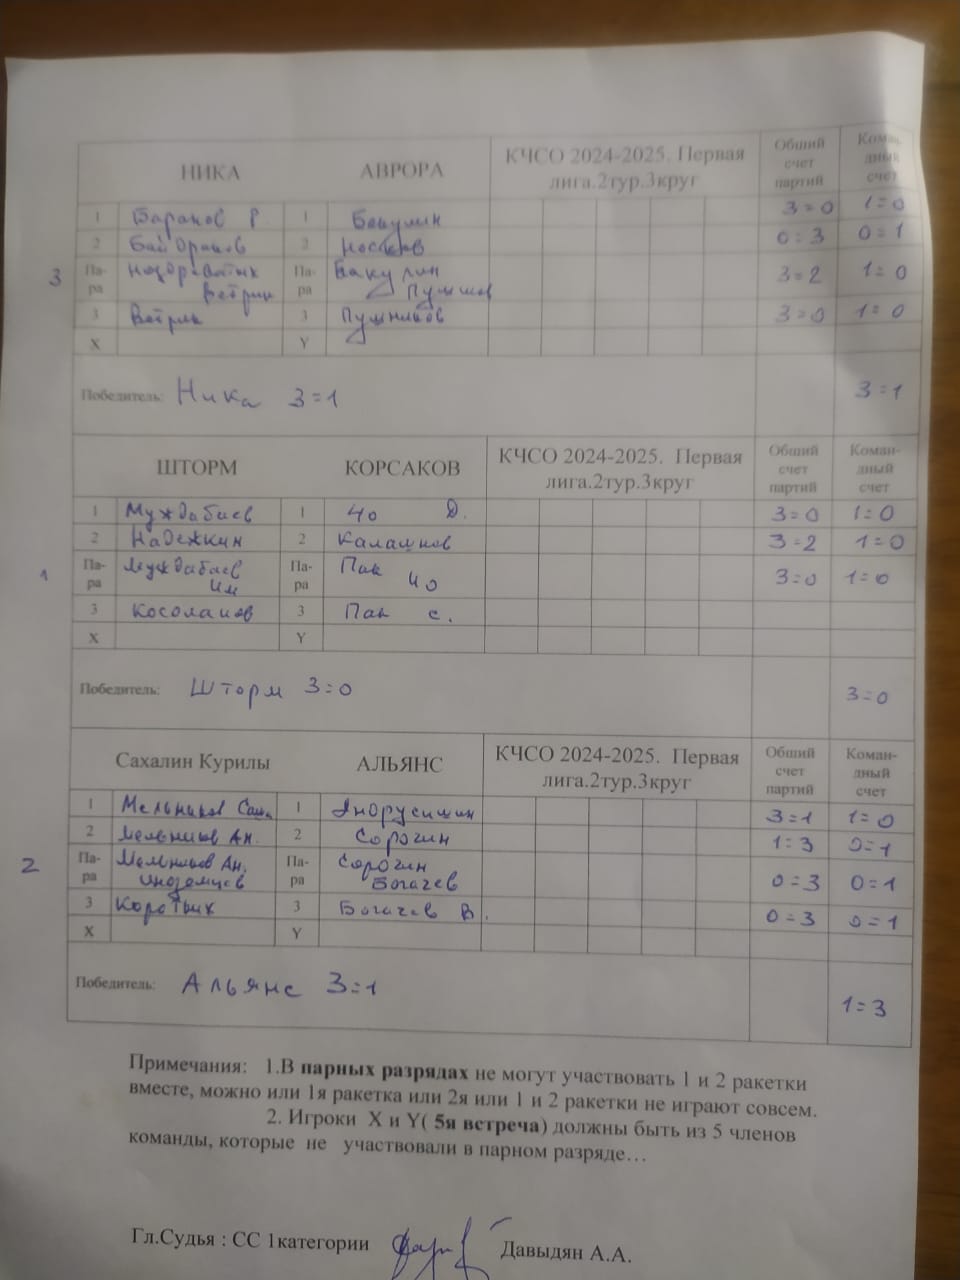 НИКА АВРОРА КЧСО 2024-2025. Первая лига.2тур.3круг Общий счет партий Коман- дный счет
1 Баранов Р 1 Бакулин 3=0 1=0
2 2 Носков 0=3 0=1
3 Па-ра Ветрик Па-ра Бакулин 3=2 1=0
3 Ветрик 3 Пушников 3=0 1=0
X Y
Победитель: Ника 3=1 3=1
ШТОРМ КОРСАКОВ КЧСО 2024-2025. Первая лига.2тур.3круг Общий счет партий Коман- дный счет
1 Муждабаев 1 Чо Д. 3=0 1=0
2 Надежкин 2 3=2 1=0
1 Па-ра Муждабаев Им Па-ра Пак Чо 3=0 1=0
3 Косолапов 3 Пак с.
X Y
Победитель: Шторм 3=0 3=0
Сахалин Курилы АЛЬЯНС КЧСО 2024-2025. Первая лига.2тур.3круг Общий счет партий Коман- дный счет
1 Мельников Саша 1 3=1 1=0
2 Мельников Ан. 2 Сорогин 1=3 0=1
2 Па-ра Мельников Ан. Иноземцев Па-ра Сорогин Богачев 0=3 0=1
3 Коротких 3 Богачев В. 0=3 0=1
X Y
Победитель: Альянс 3=1 1=3
Примечания: 1.В парных разрядах не могут участвовать 1 и 2 ракетки
вместе, можно или 1я ракетка или 2я или 1 и 2 ракетки не играют совсем.
2. Игроки X и Y( 5я встреча) должны быть из 5 членов
команды, которые не участвовали в парном разряде…
Гл.Судья : СС 1категории Давыдян А.А.